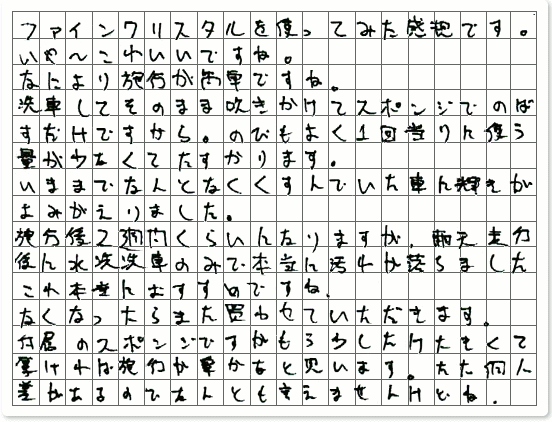 ファインクリスタルを使ってみた感想です。
いや〜これいいですね。
なにより施行が簡単ですね。
洗車してそのまま吹きかけてスポンジでのば
すだけですから。のびもよく1回当りに使う
量が少なくてたすかります。
いままでなんとなくくすんでいた車に輝きが
よみがえりました。
施行後2週間くらいになりますが、雨天走行
後に水洗洗車のみで本当に汚れが落ちました
これ本当におすすめですね。
なくなったらまた買わせていただきます。
付属のスポンジですがもう少しだけ大きくて
厚ければ施行が楽かなと思います。ただ個人
差があるのでなんとも言えませんけどね。